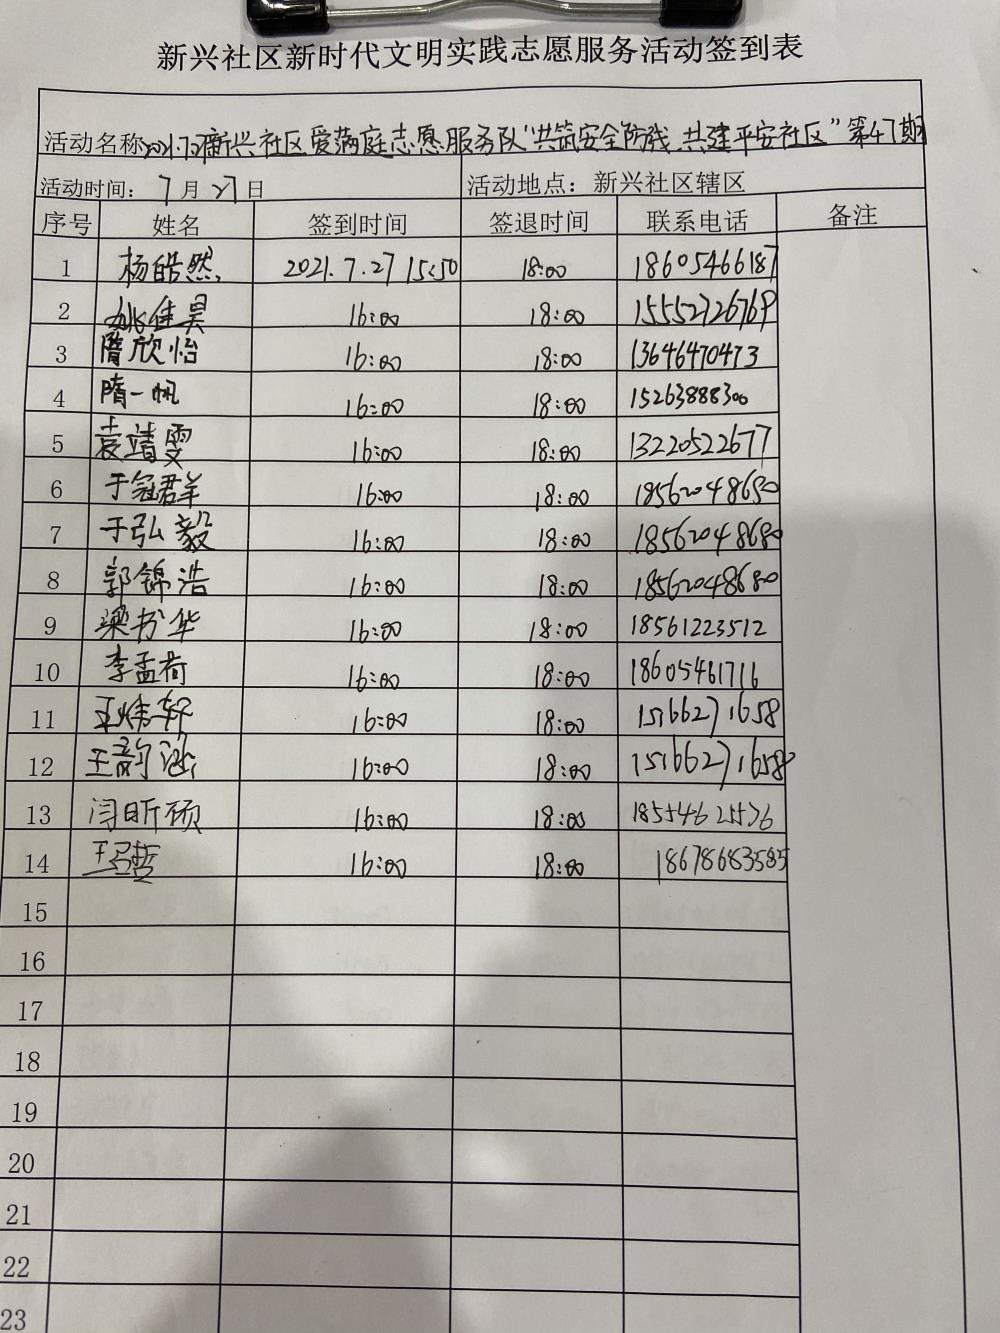 新兴社区新时代文明实践志愿服务活动签到表
活动名称 新兴社区爱满庭志愿服务队“共筑安全防线 共建平安社区”第47期
活动时间：7月27日 活动地点：新兴社区辖区
序号 姓名 签到时间 签退时间 联系电话 备注
1 杨皓然 2021.7.27 15:50 18:00 18605466187
2 姚佳昊 16:00 18:00 15552726769
3 隋欣怡 16:00 18:00 13646470473
4 隋一帆 16:00 18:00 15263888300
5 袁靖雯 16:00 18:00 13220522677
6 于冠群 16:00 18:00 18562048680
7 于弘毅 16:00 18:00 18562048680
8 郭锦浩 16:00 18:00 18562048680
9 梁书华 16:00 18:00 18561223512
10 李孟荷 16:00 18:00 18605461716
11 王炜轩 16:00 18:00 15166271658
12 王韵涵 16:00 18:00 15166271658
13 闫昕硕 16:00 18:00 18554625536
14 16:00 18:00 18678683585
15
16
17
18
19
20
21
22
23